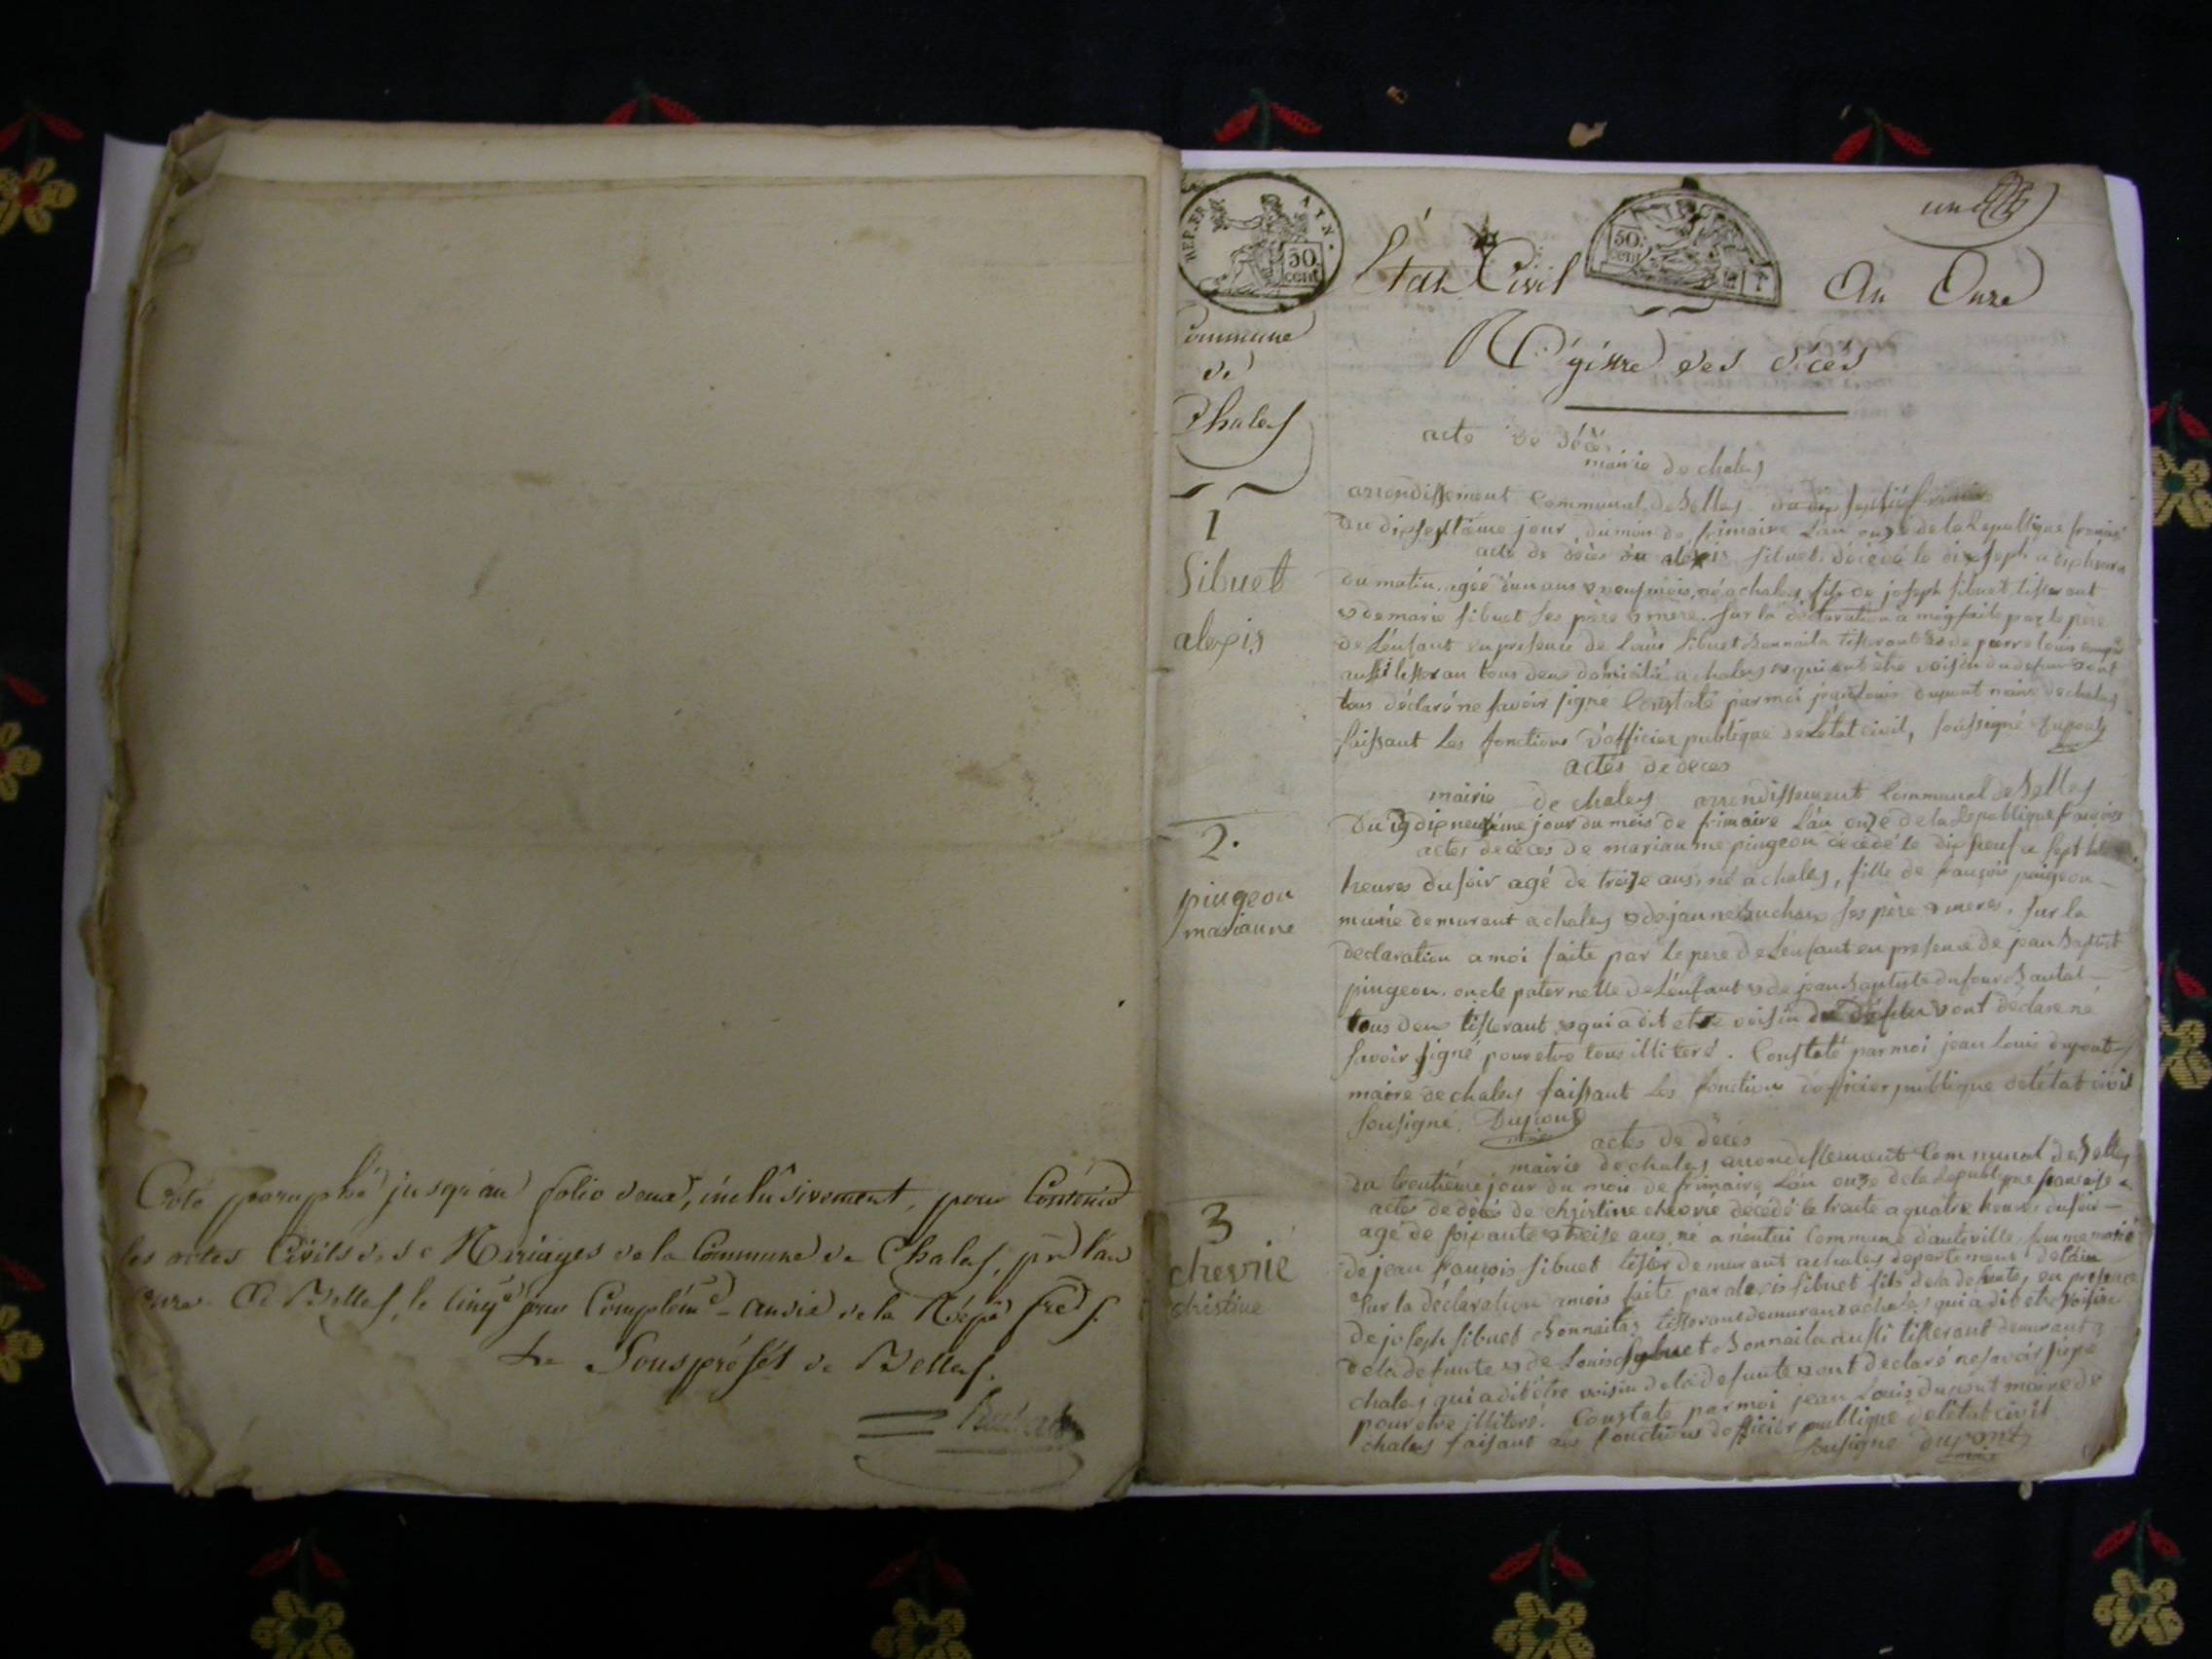 Coté paraphé jusqu'au folio deux, inclusivement, pour Contenir
les actes Civils de Mariages de la Commune de Chaley, pr l'an
onze. A Belley, le cinqe jour Complémre an dix de la Répe fre.
Le Souspréfet de Belley.
REP. FRA. AIN. 50. cent
État Civil
50. cent
An Onze
un
Commune
de
Chaley
Régistre des décès
acte de décès
mairie de chaley
1
Sibuet
alexis
arrondissement Communal de Belley
du dixseptième jour du mois de frimaire L'an onze de la Republique française
acte de décès du alexis Sibuet décédé le dixsept a dix heures
du matin, agée d'un ans & neuf mois, né a chaley, fils de joseph Sibuet tisserant
& de marie Sibuet ses père & mère. Sur la déclaration a moy faite par le père
de L'enfant en presence de Louis Sibuet Bonnaita tisserant & de pierre Louis
aussi tisseran tous deux domicilié a chaley & qui ont être voisin du defunt & ont
tous déclaré ne savoir signé Constaté par moi jean Louis dupont maire de chaley
faissant Les fonctions d'officier publique de L'état civil, soussigné dupont
actes de deces
mairie de chaley arrondissement Communal de Belley
2.
pingeon
marianne
Du 19 dix neufième jour du mois de frimaire L'an onze de la Republique française
actes de décès de marianne pingeon décédé le dix neuf a sept
heures du soir agé de treize ans, né a chaley, fille de françois pingeon
marié demurant a chaley & de jeanne Buchaux ses père & meres. Sur la
declaration a moi faite par le pere de L'enfant en presence de jean Baptist
pingeon, oncle paternelle de L'enfant & de jean Baptiste dufour Bautal
tous deux tisserant & qui a dit etre voisin & ont déclaré ne
savoir signé pour etre tous illiteré. Constaté par moi jean Louis dupont
maire de chaley faissant Les fonction d'officier publique de L'état civil
sousigné. Dupont
maire
actes de décès
mairie de chaley arrondissement Communal de Belley
3
chevrié
christine
du trentième jour du mois de frimaire L'an onze de la Republique française
actes de décès de chjirstine chevrié décédé le trente a quatre heures du soir
agé de soixante & treise ans, né a nentui Commune d'auteville, femme marié
de jean françois Sibuet tisser demurant a chaley departement de L'ain
Sur la déclaration a mois faite par alexis Sibuet fils de la defunte, en presence
de joseph Sibuet Bonnaitas tisserant demurant a chaley qui a dit etre voisin
de la defunte & de Louis Sybuet Bonnaita aussi tisserant demurant a
chaley qui a dit être voisin de la defunte & ont declaré ne savoir signé
pour etre illiteré. Constaté par moi jean Louis dupont maire de
chaley faisant les fonctions d'officier publique de L'état civil
sousigné dupont
maire